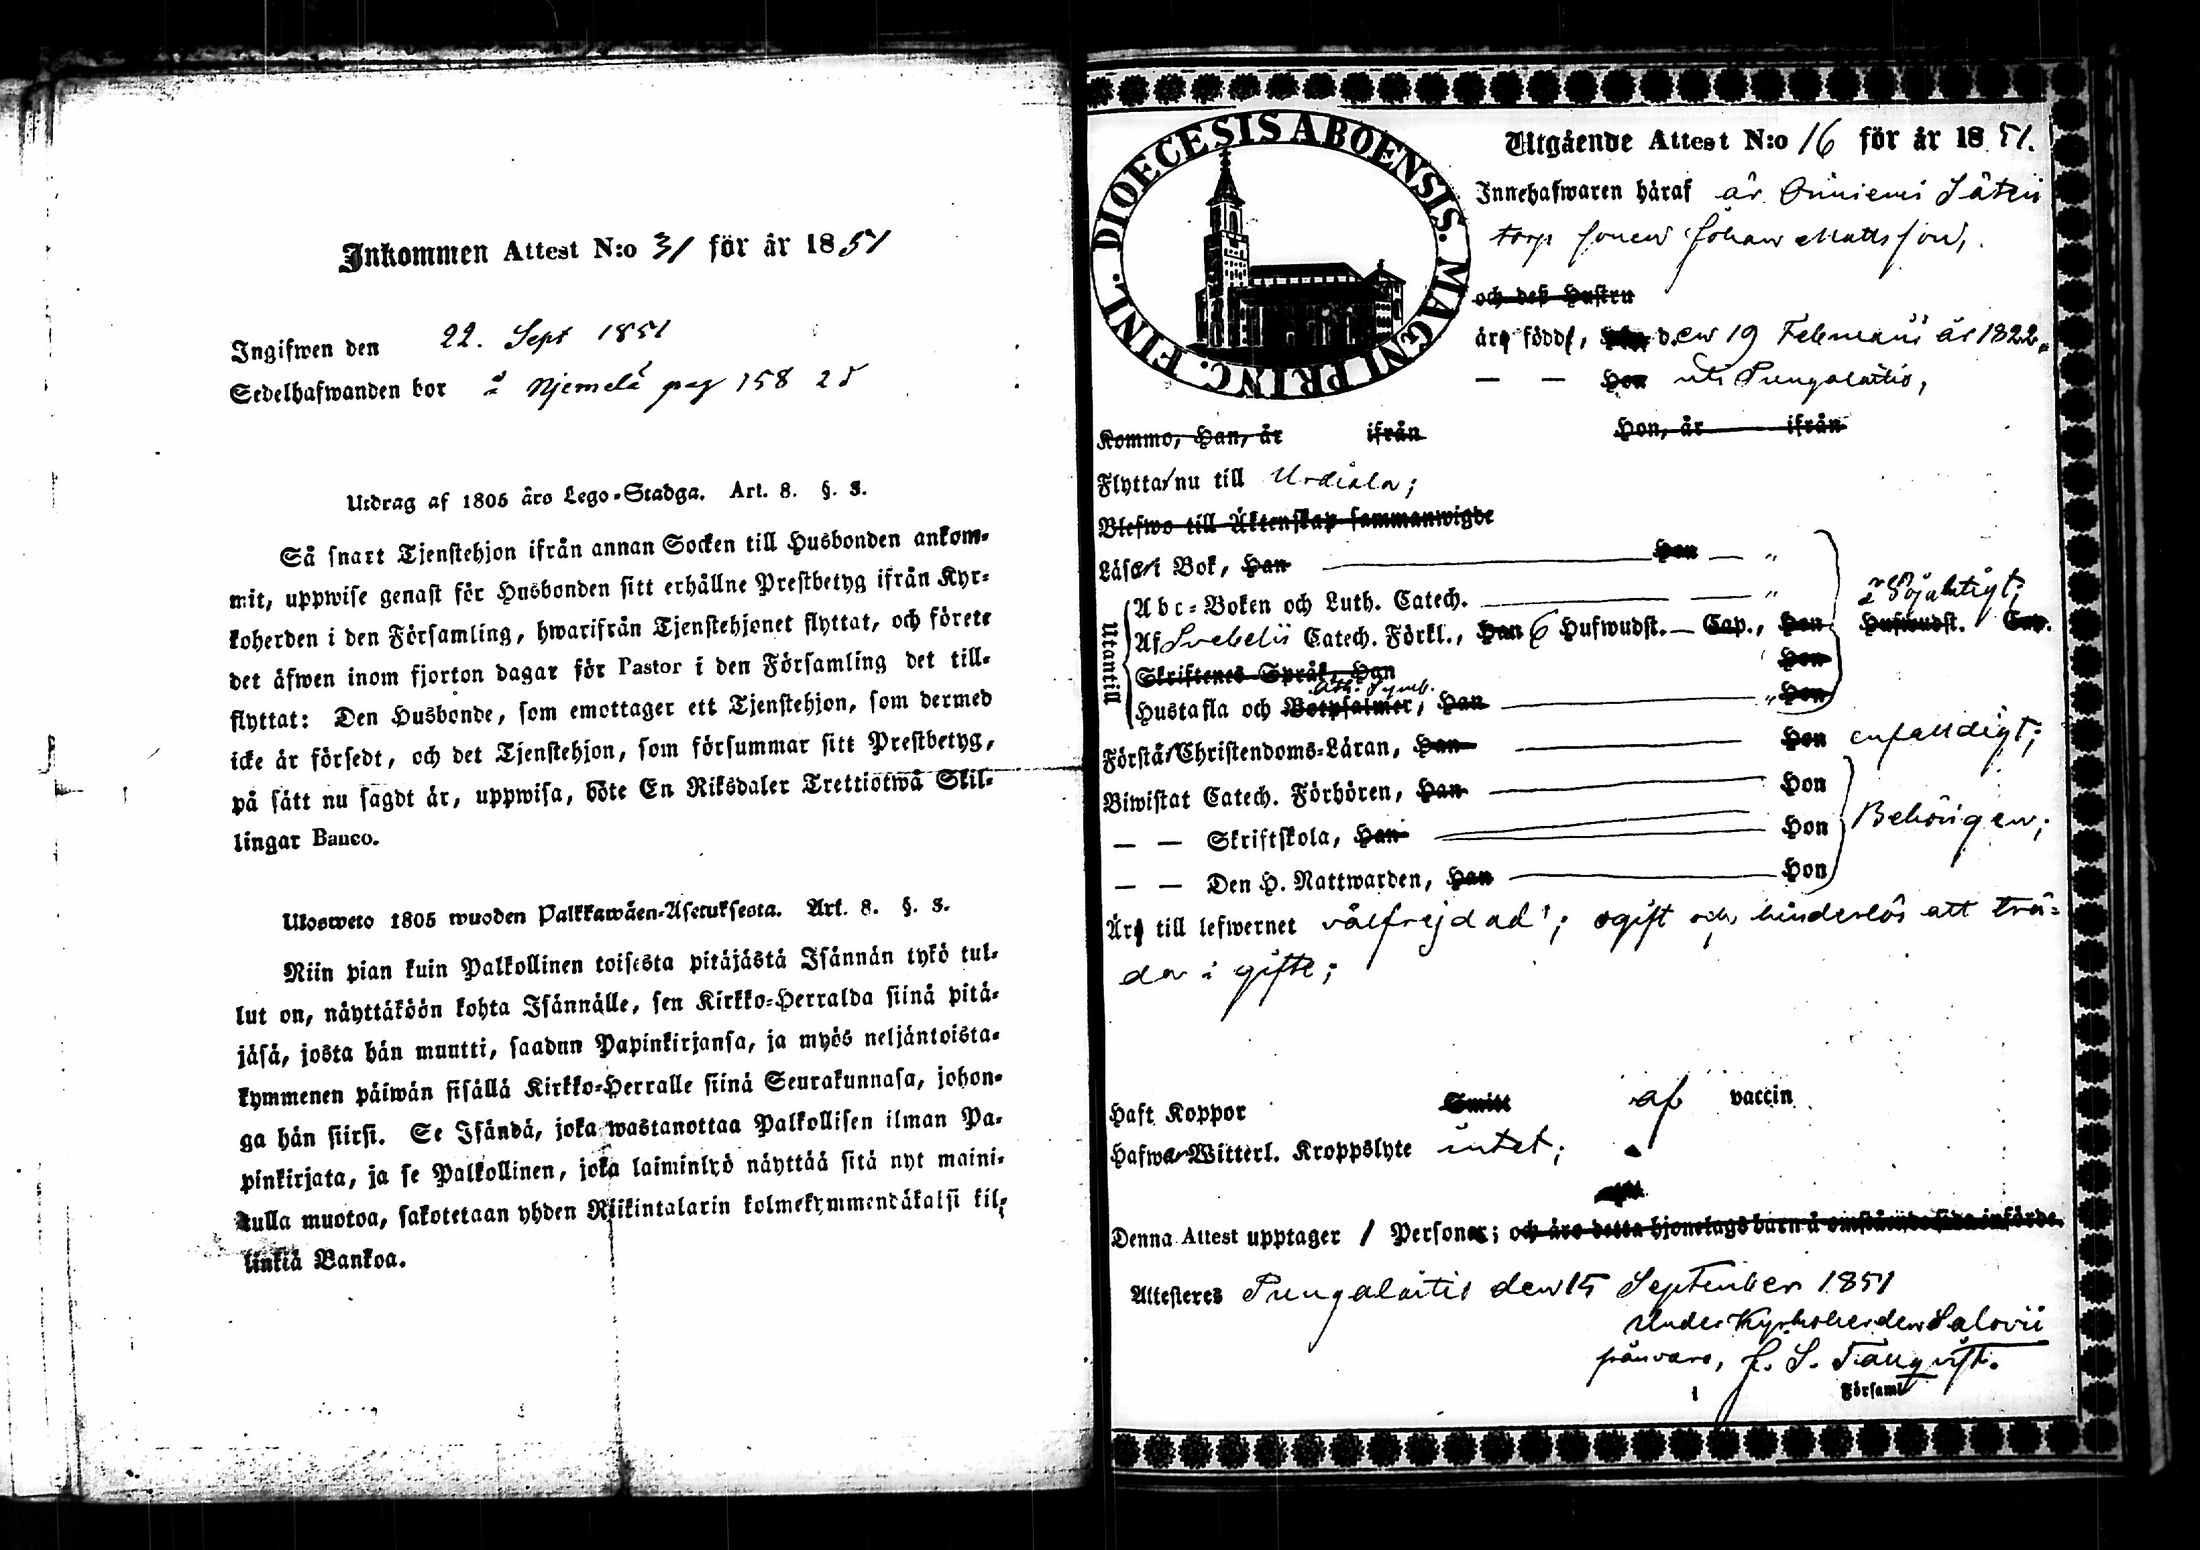 Inkommen Attest N:o 31 för år 1851
Ingifwen den 22. Sept 1851
Sedelhafwanden bor å Njemelä pag 158
Utdrag af 1805 års Lego-Stadga. Art. 8. §. 3.
Så snart Tjenstehjon ifrån annan Socken till Husbonden ankom-
mit, uppwise genast för Husbonden sitt erhållne Prestbetyg ifrån Kyr-
koherden i den Församling, hwarifrån Tjenstehjonet flyttat, och förete
det äfwen inom fjorton dagar för Pastor i den Församling det till-
flyttat: Den Husbonde, som emottager ett Tjenstehjon, som dermed
icke är försedt, och det Tjenstehjon, som försummar sitt Prestbetyg,
på sätt nu sagdt är, uppwisa, böte En Riksdaler Trettiotwå Skil-
lingar Banco.
Ulosweto 1805 wuoden Palkkawäen-Asetuksesta. Art. 8. §. 3.
Niin pian kuin Palkollinen toisesta pitäjästä Isännän tykö tul-
lut on, näyttäköön kohta Isännälle, sen Kirkko-Herralda siinä pitä-
jäsä, josta hän muutti, saadun Papinkirjansa, ja myös neljäntoista-
kymmenen päiwän sisällä Kirkko-Herralle siinä Seurakunnasa, johon-
ga hän siirsi. Se Isändä, joka wastanottaa Palkollisen ilman Pa-
pinkirjata, ja se Palkollinen, joka laiminlyö näyttää sitä nyt maini-
tulla muotoa, sakotetaan yhden Riikintalarin kolmekymmendäkaksi kil-
linkiä Bankoa.
DIOECESIS ABOENSIS. MAGNI PRINC. FINL.
Utgående Attest N:o 16 för år 1851.
Innehafwaren häraf är Säteri
torp sonen Johan Mattsson,
och deß Hustru
äro född, den 19 Februarii år 1822,
— — Hon uti Pungalaitio,
Kommo, Han, är ifrån Hon, är ifrån
Flytta nu till Urdiala;
Blefwo till Äktenskap sammanwigde
Läser i Bok, Han Hon — "
Utantill
Abc-Boken och Luth. Catech. "
försvarligt;
Af Svebelii Catech. Förkl., Han 6 Hufwudst. — Cap., Hon Hufwudst. Cap.
Skriftenes Språk, Han Hon
Ath. Symb.
Hustafla och Botpsalmer, Han " Hon
Förstår Christendoms-Läran, Han Hon enfaldigt;
Biwistat Catech. Förhören, Han Hon
— — Skriftskola, Han Hon Behörigen;
— — Den H. Nattwarden, Han Hon
Äro till lefwernet välfrejdad; ogift och hinderlös att trä-
da i gifte;
Haft Koppor Smitt af vaccin
Hafwa Witterl. Kroppslyte intet;
Denna Attest upptager 1 Person; och äro detta hjonelags barn å omstående sida införde.
Attesteres Pungalaitio den 15 September 1851
Under Kyrkoherden Salovii
frånvaro,
Församl